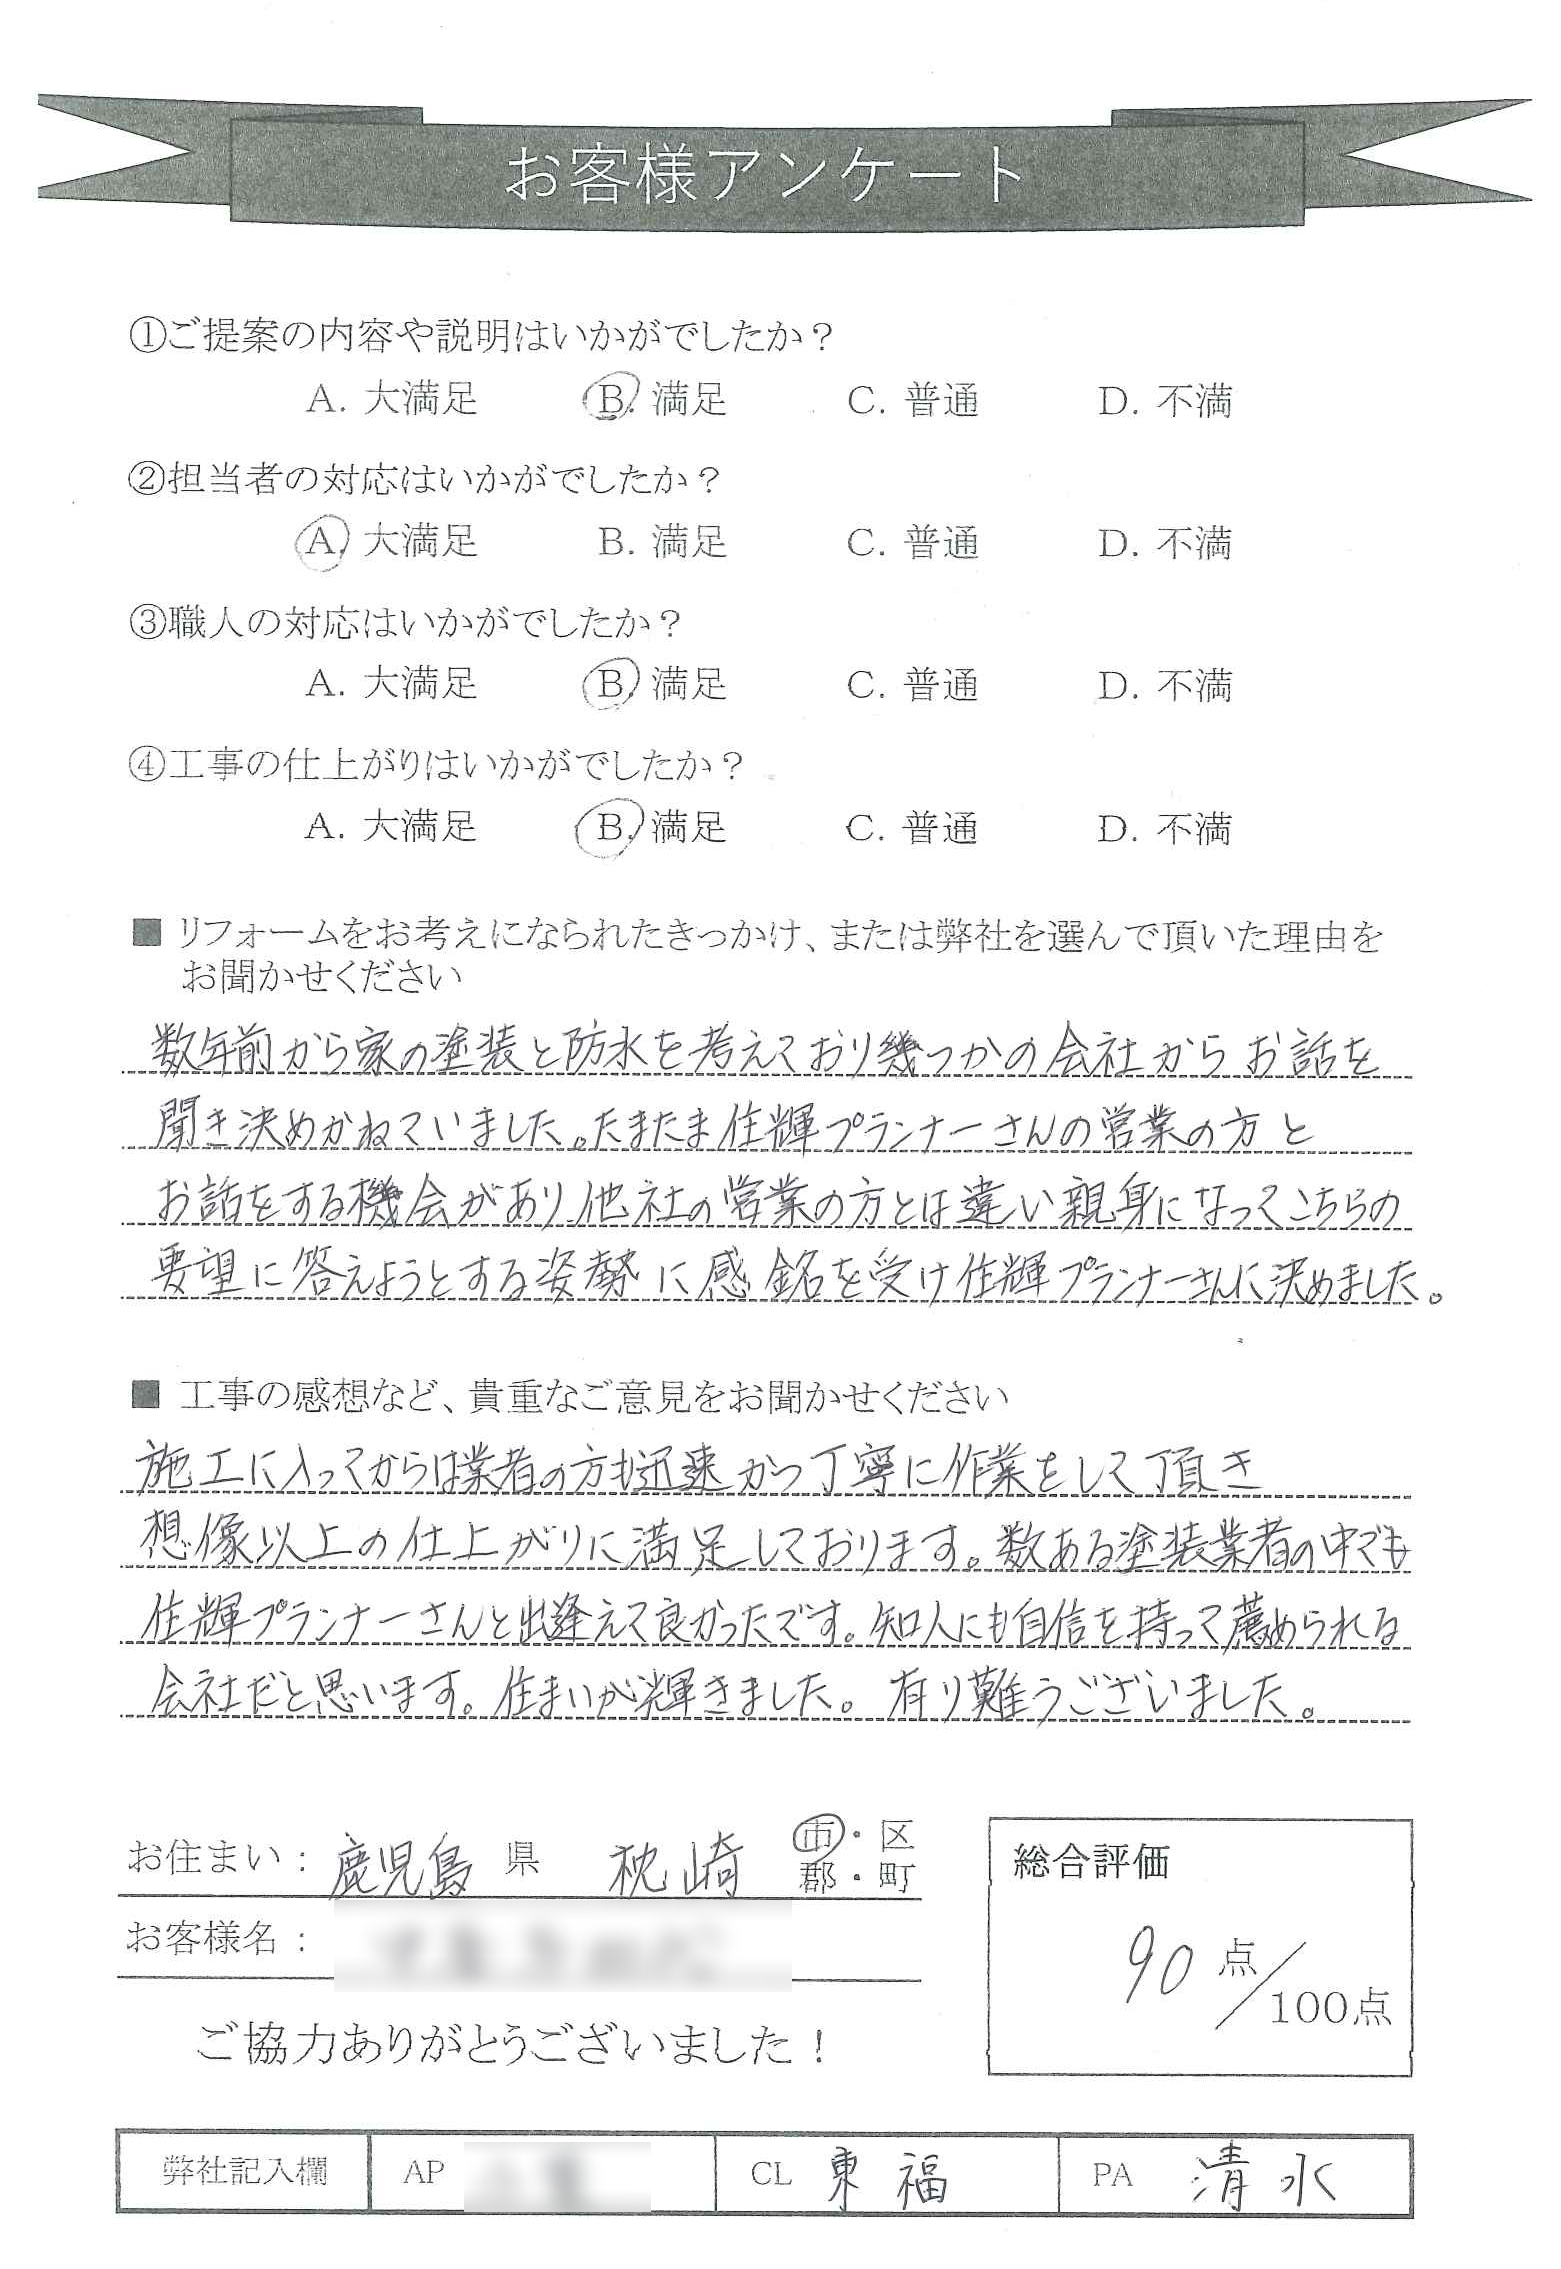 お客様アンケート
①ご提案の内容や説明はいかがでしたか？
A. 大満足 B. 満足 C. 普通 D. 不満
②担当者の対応はいかがでしたか？
A. 大満足 B. 満足 C. 普通 D. 不満
③職人の対応はいかがでしたか？
A. 大満足 B. 満足 C. 普通 D. 不満
④工事の仕上がりはいかがでしたか？
A. 大満足 B. 満足 C. 普通 D. 不満
■ リフォームをお考えになられたきっかけ、または弊社を選んで頂いた理由を
お聞かせください
数年前から家の塗装と防水を考えており幾つかの会社からお話を
聞き決めかねていました。たまたま住輝プランナーさんの営業の方と
お話をする機会があり、他社の営業の方とは違い親身になってこちらの
要望に答えようとする姿勢に感銘を受け住輝プランナーさんに決めました。
■ 工事の感想など、貴重なご意見をお聞かせください
施工に入ってからは業者の方も迅速かつ丁寧に作業をして頂き
想像以上の仕上がりに満足しております。数ある塗装業者の中でも
住輝プランナーさんと出逢えて良かったです。知人にも自信を持って薦められる
会社だと思います。住まいが輝きました。有り難うございました。
お住まい： 鹿児島 県 枕崎 市・区
郡・町
お客様名：
ご協力ありがとうございました！
総合評価
90 点／100点
弊社記入欄 AP CL 東福 PA 清水